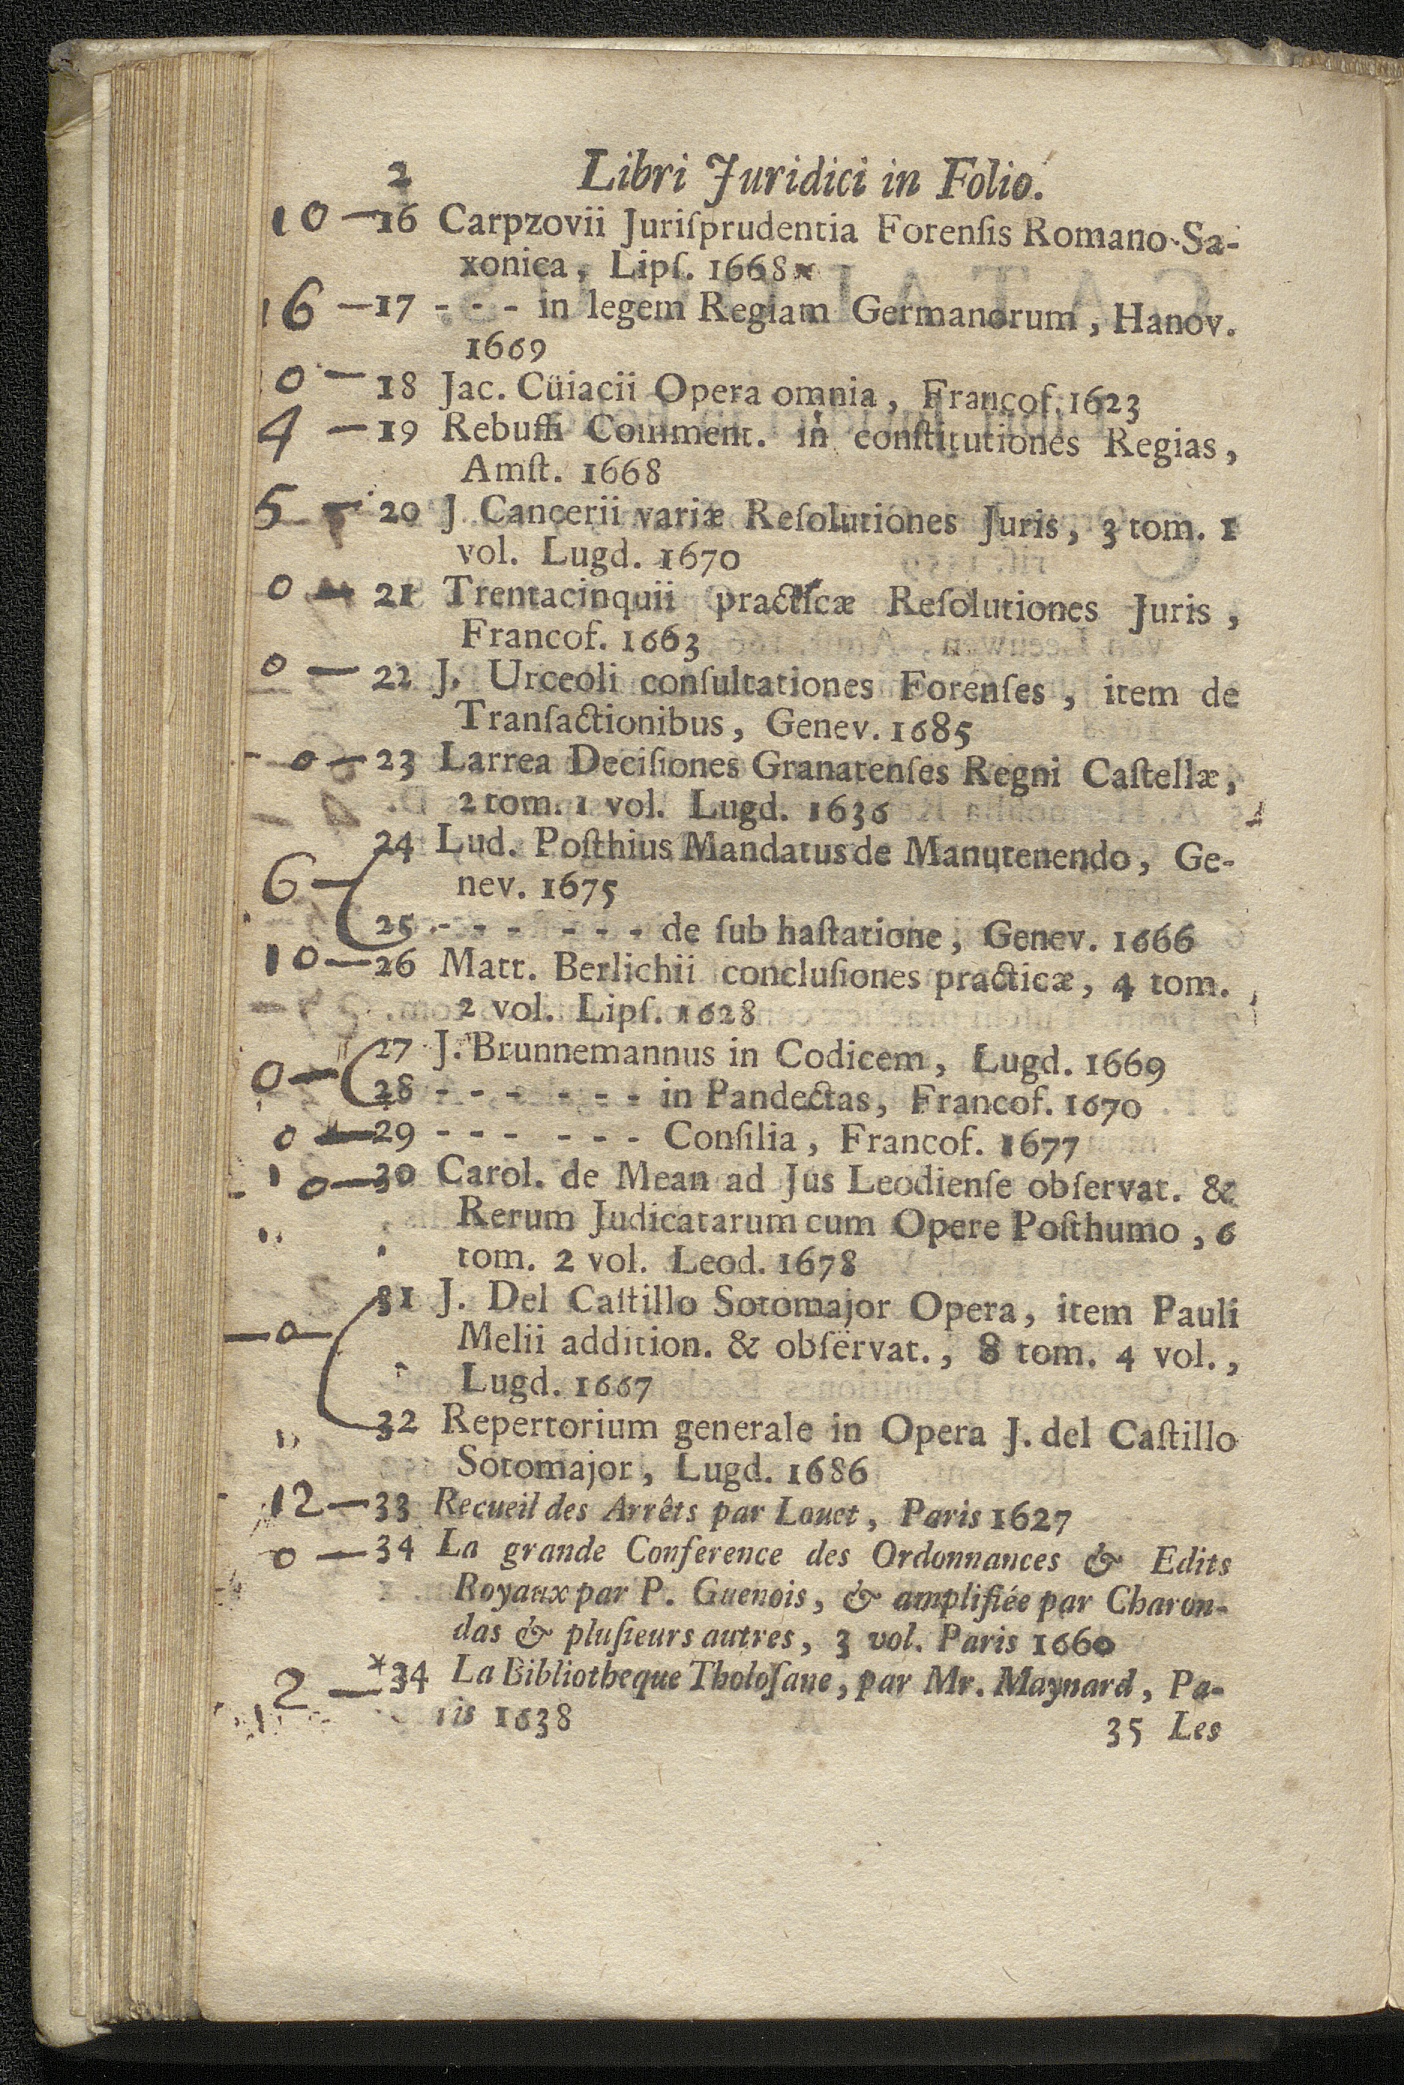 2 Libri Juridici in Folio.
10 — 16 Carpzovii Juriſprudentia Forenſis Romano-Sa-
xonica, Lipſ. 1668
16 — 17 - - - in legem Regiam Germanorum, Hanov.
1669
0 — 18 Jac. Cüiacii Opera omnia, Francof. 1623
4 — 19 Rebuffi Comment. in conſtitutiones Regias,
Amſt. 1668
5 — 20 J. Cancerii variæ Reſolutiones Juris, 3 tom. 1
vol. Lugd. 1670
0 — 21 Trentacinquii practicæ Reſolutiones Juris,
Francof. 1663
0 — 22 J. Urceoli conſultationes Forenſes, item de
Tranſactionibus, Genev. 1685
- 0 — 23 Larrea Deciſiones Granatenſes Regni Caſtellæ,
2 tom. 1 vol. Lugd. 1636
24 Lud. Poſthius Mandatus de Manutenendo, Ge-
6 — nev. 1675
25 - - - - - - de ſub haſtatione, Genev. 1666
10 — 26 Matt. Berlichii concluſiones practicæ, 4 tom.
2 vol. Lipſ. 1628
27 J. Brunnemannus in Codicem, Lugd. 1669
0 — 28 - - - - - - in Pandectas, Francof. 1670
0 — 29 - - - - - - Conſilia, Francof. 1677
- 10 — 30 Carol. de Mean ad Jus Leodienſe obſervat. &
Rerum Judicatarum cum Opere Poſthumo, 6
tom. 2 vol. Leod. 1678
31 J. Del Caſtillo Sotomajor Opera, item Pauli
— 0 — Melii addition. & obſervat., 8 tom. 4 vol.,
Lugd. 1667
32 Repertorium generale in Opera J. del Caſtillo
Sotomajor, Lugd. 1686
- 12 — 33 Recueil des Arrêts par Louet, Paris 1627
0 — 34 La grande Conference des Ordonnances & Edits
Royaux par P. Guenois, & amplifiée par Charon-
das & pluſieurs autres, 3 vol. Paris 1660
2 — *34 La Bibliotheque Tholoſane, par Mr. Maynard, Pa-
ris 1638
35 Les